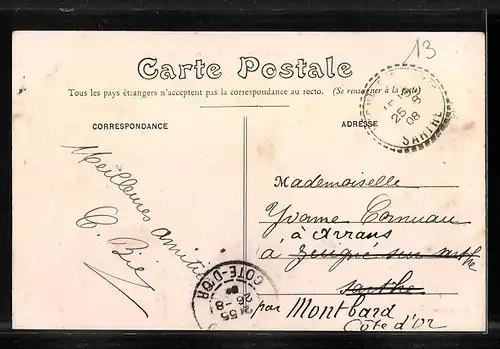 13
Carte Postale
Tous les pays étrangers n'acceptent pas la correspondance au recto. (Se renseigner à la poste)
CORRESPONDANCE
ADRESSE
25 - 8
08
SARTHE
Meilleures amitiés
Mademoiselle
Yvonne
à Arrans
à sur Sarthe
Sarthe
par Montbard
Côte d'Or
COTE-D'OR
26-8